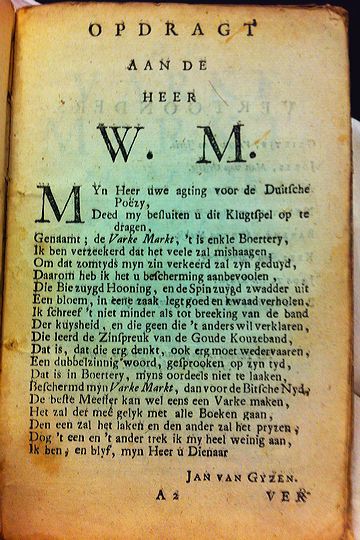 OPDRAGT
AAN DE
HEER
W. M.
MYn Heer uwe agting voor de Duitsche
Poëzy,
Deed my besluiten u dit Klugtspel op te
dragen,
Genaamt; de Varke Markt, 't is enkle Boertery,
Ik ben verzeekerd dat het veele zal mishaagen,
Om dat zomtyds myn zin verkeerd zal zyn geduyd,
Daarom heb ik het u bescherming aanbevoolen,
DIe Bie zuygd Hooning, en de Spin zuygd zwadder uit
Een bloem, in eene zaak legt goed en kwaad verholen,
Ik schreef 't niet minder als tot breeking van de band
Der kuysheid, en die geen die 't anders wil verklaren,
Die leerd de Zinspreuk van de Goude Kouzeband,
Dat is, dat die erg denkt, ook erg moet wedervaaren,
Een dubbelzinnig woord, gesprooken op zyn tyd,
Dat is Boertery, myns oordeels niet te laaken,
Beschermd myn Varke Markt, dan voor de Bitsche Nyd,
De beste Meester kan wel eens een Varke maken,
Het zal der meê gelyk met alle Boeken gaan,
Den een zal het laken en den ander zal het pryzen;
Dog 't een en 't ander trek ik my heel weinig aan,
Ik ben, en blyf, myn Heer u Dienaar
JAN VAN GYZEN.
A 2 VER